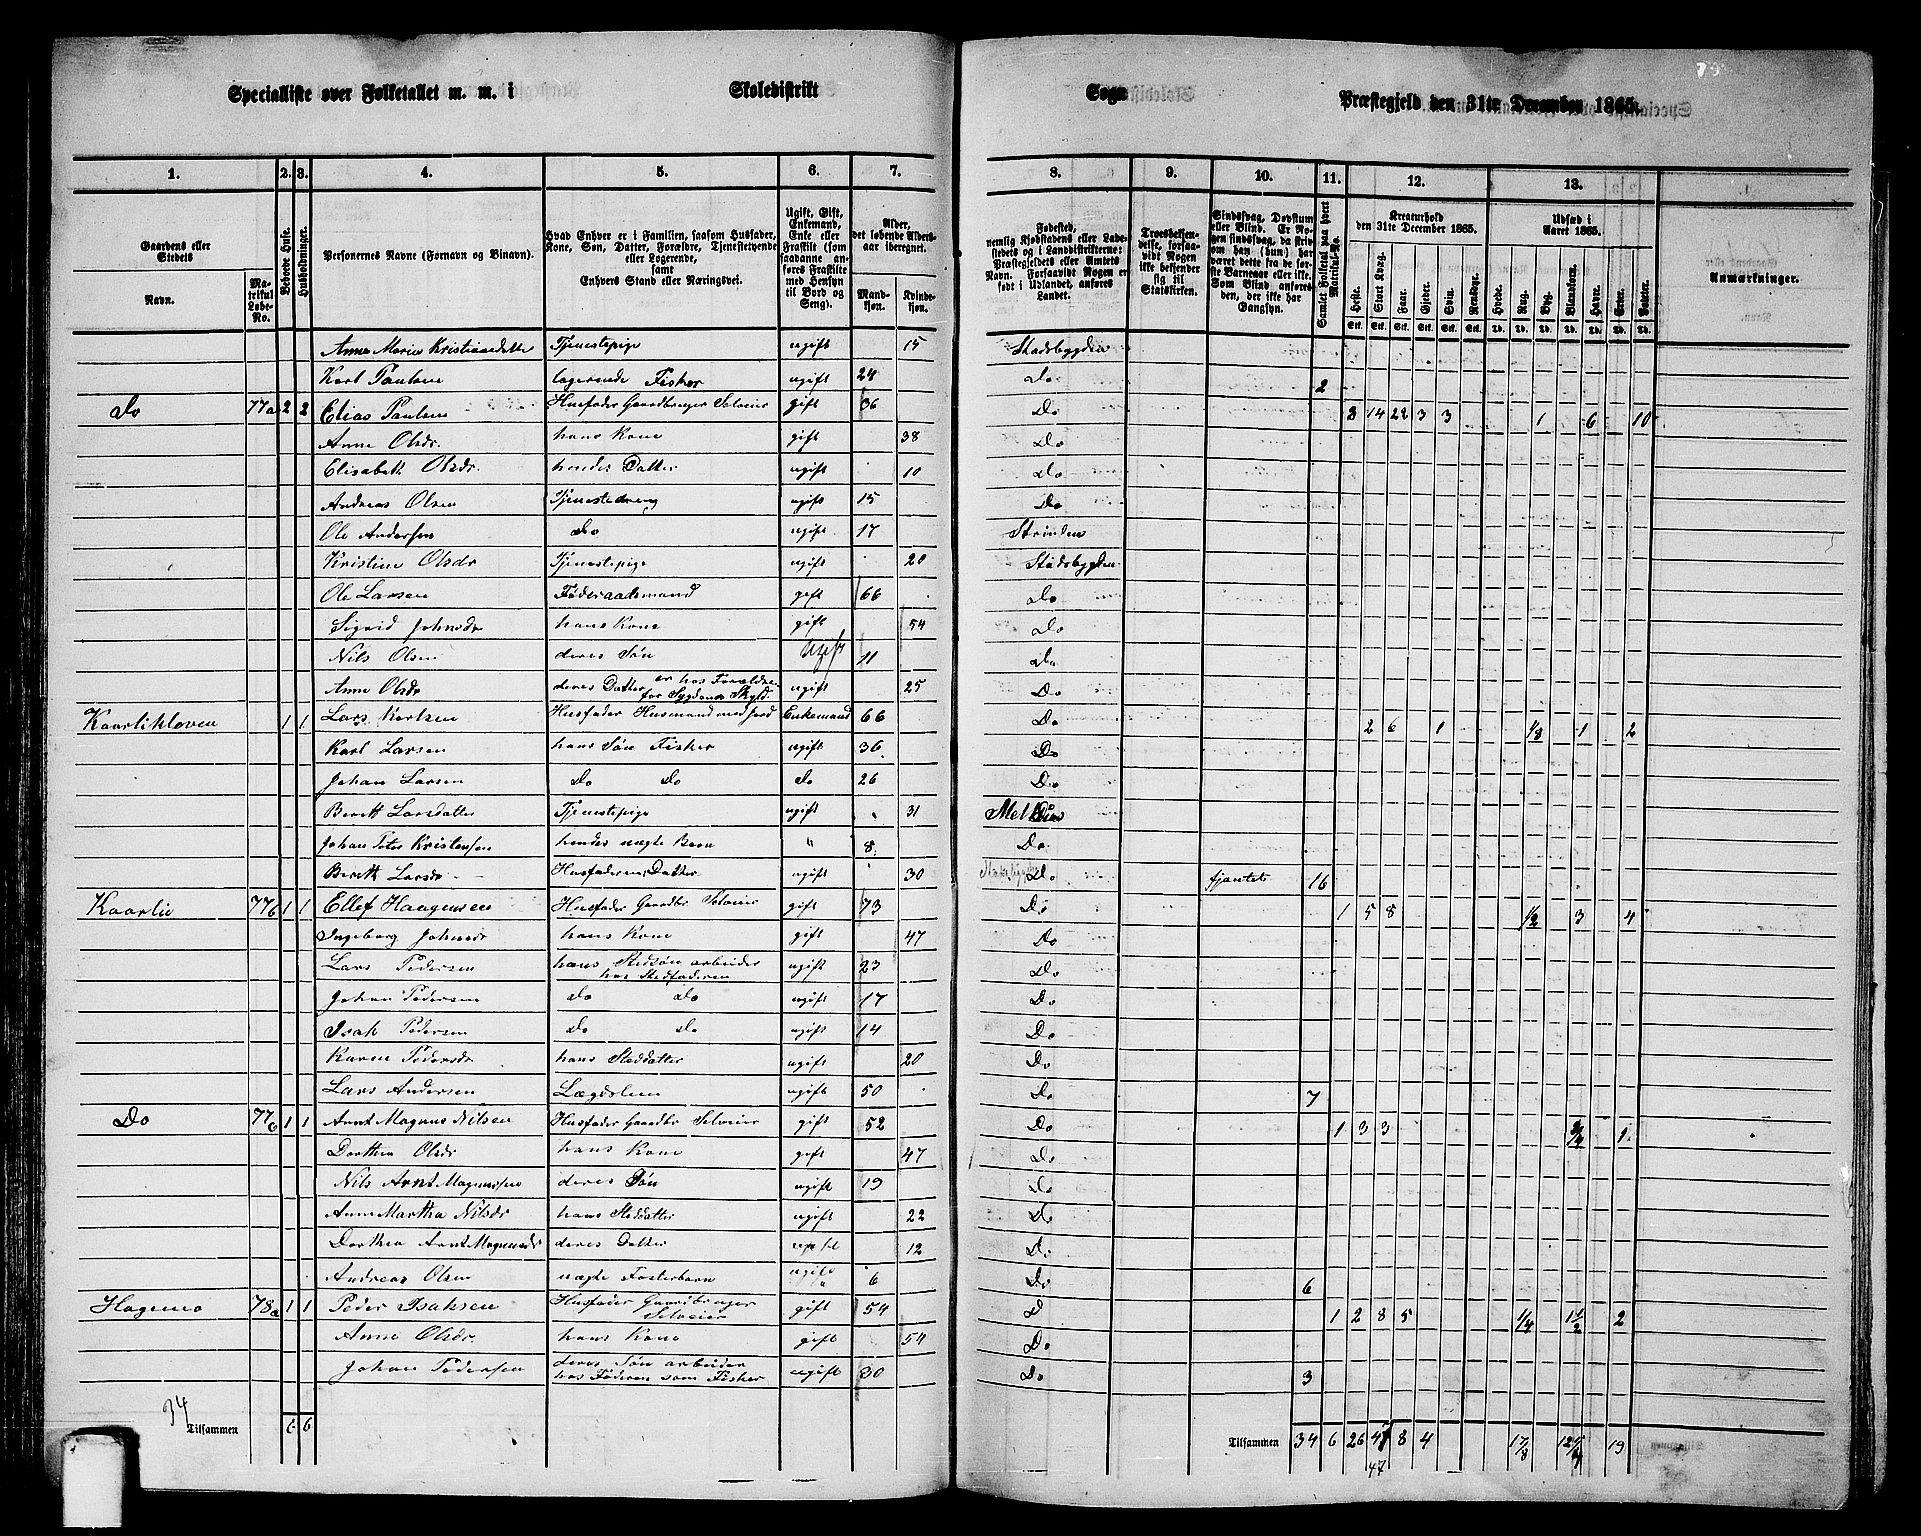 Specialliste over Folketallet m. m. i Skoledistrikt Sogn Præstegjeld den 31te December 1865.
1. 2. 3. 4. 5. 6. 7. 8. 9. 10. 11. 12. 13.
Gaardens eller Stedets
Navn. Matrikul Løbe-No.
Beboede Huse.
Husholdninger.
Personernes Navne (Fornavn og Binavn).
Hvad Enhver er i Familien, saasom Husfader, Kone, Søn, Datter, Forældre, Tjenestetyende eller Logerende, samt Enhvers Stand eller Næringsvei.
Ugift, Gift, Enkemand, Enke eller Fraskilt (som saadanne anføres Fraskilte med Hensyn til Bord og Seng).
Alder, det løbende Aldersaar iberegnet.
Mandkjøn. Kvindekjøn.
Fødested, nemlig Kjøbstadens eller Ladestedets og i Landdistrikterne: Præstegjeldets eller Amtets Navn. Forsaavidt Nogen er født i Udlandet, anføres Landet.
Troesbekjendelse, forsaavidt Nogen ikke bekjender sig til Statskirken.
Sindssvag, Døvstum eller Blind. Er Nogen sindssvag, da skrives han (hun) har været dette fra de første Barneaar eller ikke. Som Blind anføres den, der ikke har Gangsyn.
Samlet Folketal paa hvert Matrikul-No.
Kreaturhold den 31te December 1865.
Heste. Stort Kvæg. Faar. Gjeder. Svin. Rensdyr.
Udsæd i Aaret 1865.
Hvede. Rug. Byg. Blandkorn. Havre. Erter. Poteter.
Anmærkninger.
Anne Marie Kristiansdatter Tjenestepige ugift 15 Stadsbygden
Karl Paulsen logerende Fisker ugift 24 Do 2
Do 77a 2 2 Elias Paulsen Husfader Gaardbruger Selveier gift 36 Do 3 14 22 3 3 1 6 10
Anne Olsdr hans Kone gift 38 Do
Elisabeth Olsdr. hendes Datter ugift 10 Do
Andreas Olsen Tjenestedreng ugift 15 Do
Ole Andersen Do ugift 17 Strinden
Kristine Olsdr Tjenestepige ugift 20 Stadsbygden
Ole Larsen Føderaadsmand gift 66 Do
Sigrid Johnsdr hans Kone gift 54 Do
Nils Olsen deres Søn ugift 11 Do
Anne Olsdr deres Datter er hos Forældre for Sygdoms Skyld ugift 25 Do
Kaarlikloven 1 1 Lars Karlsen Husfader Husmand med Jord Enkemand 66 Do 2 6 1 1/8 1 2
Karl Larsen hans Søn Fisker ugift 36 Do
Johan Larsen Do Do Do 26 Do
Berett Larsdatter Tjenestepige ugift 31
Johan Peter Kristensen hendes uægte Barn " 8 Do
Berett Larsdr Husfaderens Datter ugift 30 Do fjantet 16
Kaarlie 77b 1 1 Ellef Haagensen Husfader Gaardbr Selveier gift 73 Do 1 5 8 1/2 3 4
Ingeborg Johnsdr hans Kone gift 47 Do
Lars Pedersen hans Stedsøn arbeider hos Stedfaderen ugift 23 Do
Johan Pedersen Do Do ugift 17 Do
Isak Pedersen Do Do ugift 14 Do
Karen Pedersdr hans Steddatter ugift 20 Do
Lars Andersen Lægdslem ugift 50 Do 7
Do 77c 1 1 Arnt Magnus Nilsen Husfader Gaardbr Selveier gift 52 Do 1 3 3 3/4 1
Dorthea Olsdr hans Kone gift 47 Do
Nils Arnt Magnussen deres Søn ugift 19 Do
Anne Martha Nilsdr hans Steddatter ugift 22 Do
Dorthea Arnt Magnusdr deres Datter ugift 12 Do
Andreas Olsen uægte Fosterbarn ugift 6 Do 6
Hagemo 78a 1 1 Peder Isaksen Husfader Gaardbruger Selveier gift 54 D 1 2 8 5 1/4 1 1/2 2
Anne Olsdr hans Kone gift 54 Do
Johan Pedersen deres Søn arbeider hos Faderen som Fisker ugift 30 Do 3
34 Tilsammen 6 6 Tilsammen 34 6 26 47 8 4 1 7/8 12 1/4 19
47